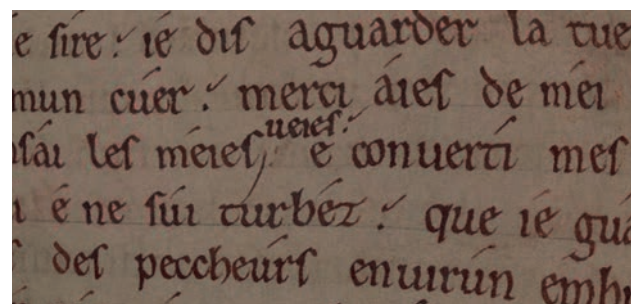 e sire. ie dis aguarder la tue
mun cuer. merci aies de mei
sai les meies ueies. e conuerti mes
e ne sui turbez. que ie gua
des peccheurs enuirun